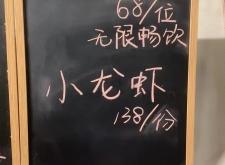 68/位
无限畅饮
小龙虾
138/份